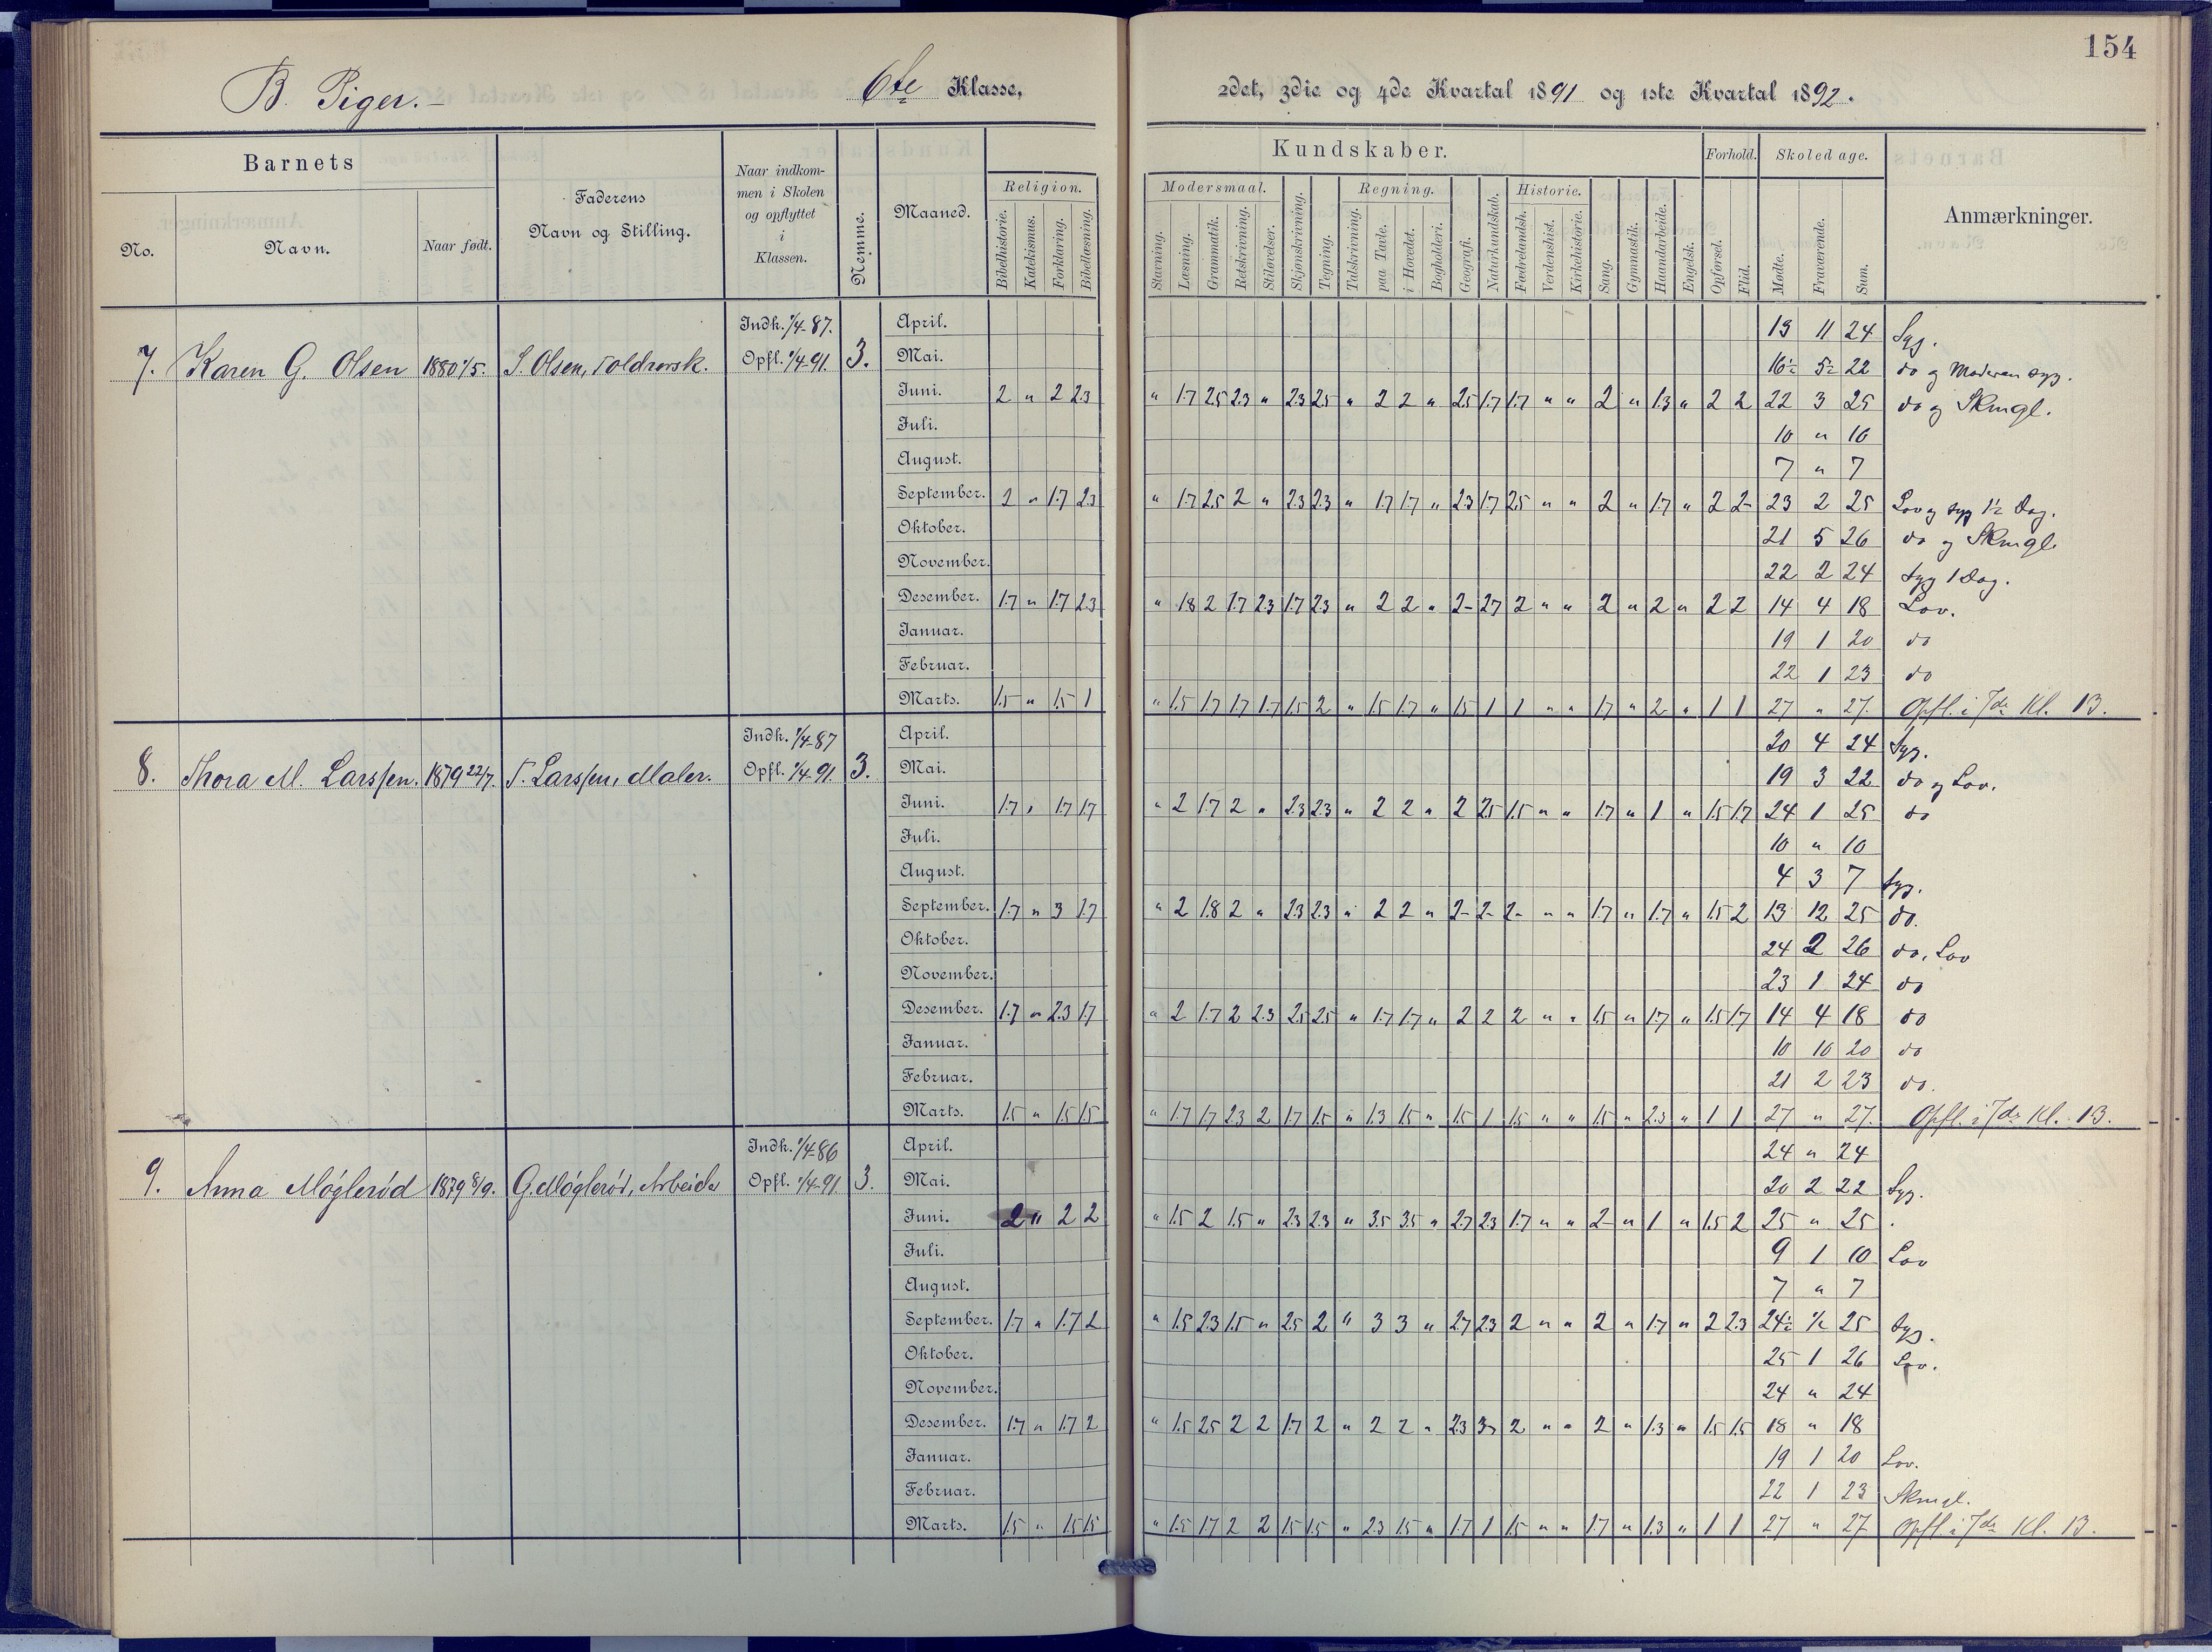 154
B. Piger. – 6te Klasse, 2det, 3die og 4de Kvartal 1891 og 1ste Kvartal 1892.
Barnets
No. Navn. Naar født.
Faderens
Navn og Stilling.
Naar indkom-
men i Skolen
og opflyttet
i
Klassen.
Nemme.
Maaned.
Kundskaber.
Religion.
Bibelhistorie. Katekismus. Forklaring. Bibellæsning.
Modersmaal.
Stavning. Læsning. Grammatik. Retskrivning. Stiløvelser. Skjønskrivning. Tegning.
Regning.
Talskrivning. paa Tavle. i Hovedet. Bogholderi. Geografi. Naturkundskab.
Historie.
Fædrelandsh. Verdenshist. Kirkehistorie. Sang. Gymnastik. Haandarbeide. Engelsk.
Forhold.
Opførsel. Flid.
Skoledage.
Mødte. Fraværende. Sum.
Anmærkninger.
7. Karen G. Olsen 1880 1/5. S. Olsen, Toldrorsk. Indk. 1/4-87. Opfl. 1/4-91. 3.
April. 13 11 24 Syg.
Mai. 16½ 5½ 22 do og Moderen syg.
Juni. 2 " 2 2.3 " 1.7 2.5 2.3 " 2.3 2.5 " 2 2 " 2.5 1.7 1.7 " " 2 " 1.3 " 2 2 22 3 25 do og Skmgl.
Juli. 10 " 10
August. 7 " 7
September. 2 " 1.7 2.3 " 1.7 2.5 2 " 2.3 2.3 " 1.7 1.7 " 2.3 1.7 2.5 " " 2 " 1.7 " 2 2- 23 2 25 Lov og syg 1½ Dag.
Oktober. 21 5 26 do og Skmgl.
November. 22 2 24 Syg 1 Dag.
Desember. 1.7 " 1.7 2.3 " 1.8 2 1.7 2.3 1.7 2.3 " 2 2 " 2- 2.7 2 " " 2 " 2 " 2 2 14 4 18 Lov.
Januar. 19 1 20 do
Februar. 22 1 23 do
Marts. 1.5 " 1.5 1 " 1.5 1.7 1.7 1.7 1.5 2 " 1.5 1.7 " 1.5 1 1 " " 1.7 " 2 " 1 1 27 " 27. Opfl. i 7de Kl. B.
8. Thora M. Larssen. 1879 22/7. T. Larssen, Maler. Indk. 1/4-87 Opfl. 1/4-91. 3.
April. 20 4 24 Syg.
Mai. 19 3 22 do og Lov.
Juni. 1.7 " 1.7 1.7 " 2 1.7 2 " 2.3 2.3 " 2 2 " 2 2.5 1.5 " " 1.7 " 1 " 1.5 1.7 24 1 25 do
Juli. 10 " 10
August. 4 3 7 Syg.
September. 1.7 " 3 1.7 " 2 1.8 2 " 2.3 2.3 " 2 2 " 2- 2- 2- " " 1.7 " 1.7 " 1.5 2 13 12 25 do.
Oktober. 24 2 26 do, Lov
November. 23 1 24 do
Desember. 1.7 " 2.3 1.7 " 2 1.7 2 2.3 2.5 2.5 " 1.7 1.7 " 2 2 2 " " 1.5 " 1.7 " 1.5 1.7 14 4 18 do
Januar. 10 10 20 do
Februar. 21 2 23 do.
Marts. 1.5 " 1.5 1.5 " 1.7 1.7 2.3 2 1.7 1.5 " 1.3 1.5 " 1.5 1 1.5 " " 1.5 " 2.3 " 1 1 27 " 27. Opfl. i 7de Kl. B.
9. Anna Møglerød 1879 8/9. G. Møglerød, Arbeider Indk. 1/4-86 Opfl. 1/4-91. 3.
April. 24 " 24
Mai. 20 2 22 Syg.
Juni. 2 " 2 2 " 1.5 2 1.5 " 2.3 2.3 " 3.5 3.5 " 2.7 2.3 1.7 " " 2- " 1 " 1.5 2 25 " 25
Juli. 9 1 10 Lov
August. 7 " 7
September. 1.7 " 1.7 2 " 1.5 2.3 1.5 " 2.5 2 " 3 3 " 2.7 2.3 2 " " 2 " 1.7 " 2 2.3 24½ ½ 25 Syg.
Oktober. 25 1 26 Lov.
November. 24 " 24
Desember. 1.7 " 1.7 2 " 1.5 2.5 2 2 1.7 2 " 2 2 " 2.3 3- 2 " " 2 " 1.3 " 1.5 1.5 18 " 18
Januar. 19 1 20 Lov.
Februar. 22 1 23 Skmgl.
Marts. 1.5 " 1.5 1.5 " 1.5 1.7 2 2 1.5 1.5 " 2.3 1.5 " 1.7 1 1.5 " " 1.7 " 1.3 " 1 1 27 " 27 Opfl. i 7de Kl. B.